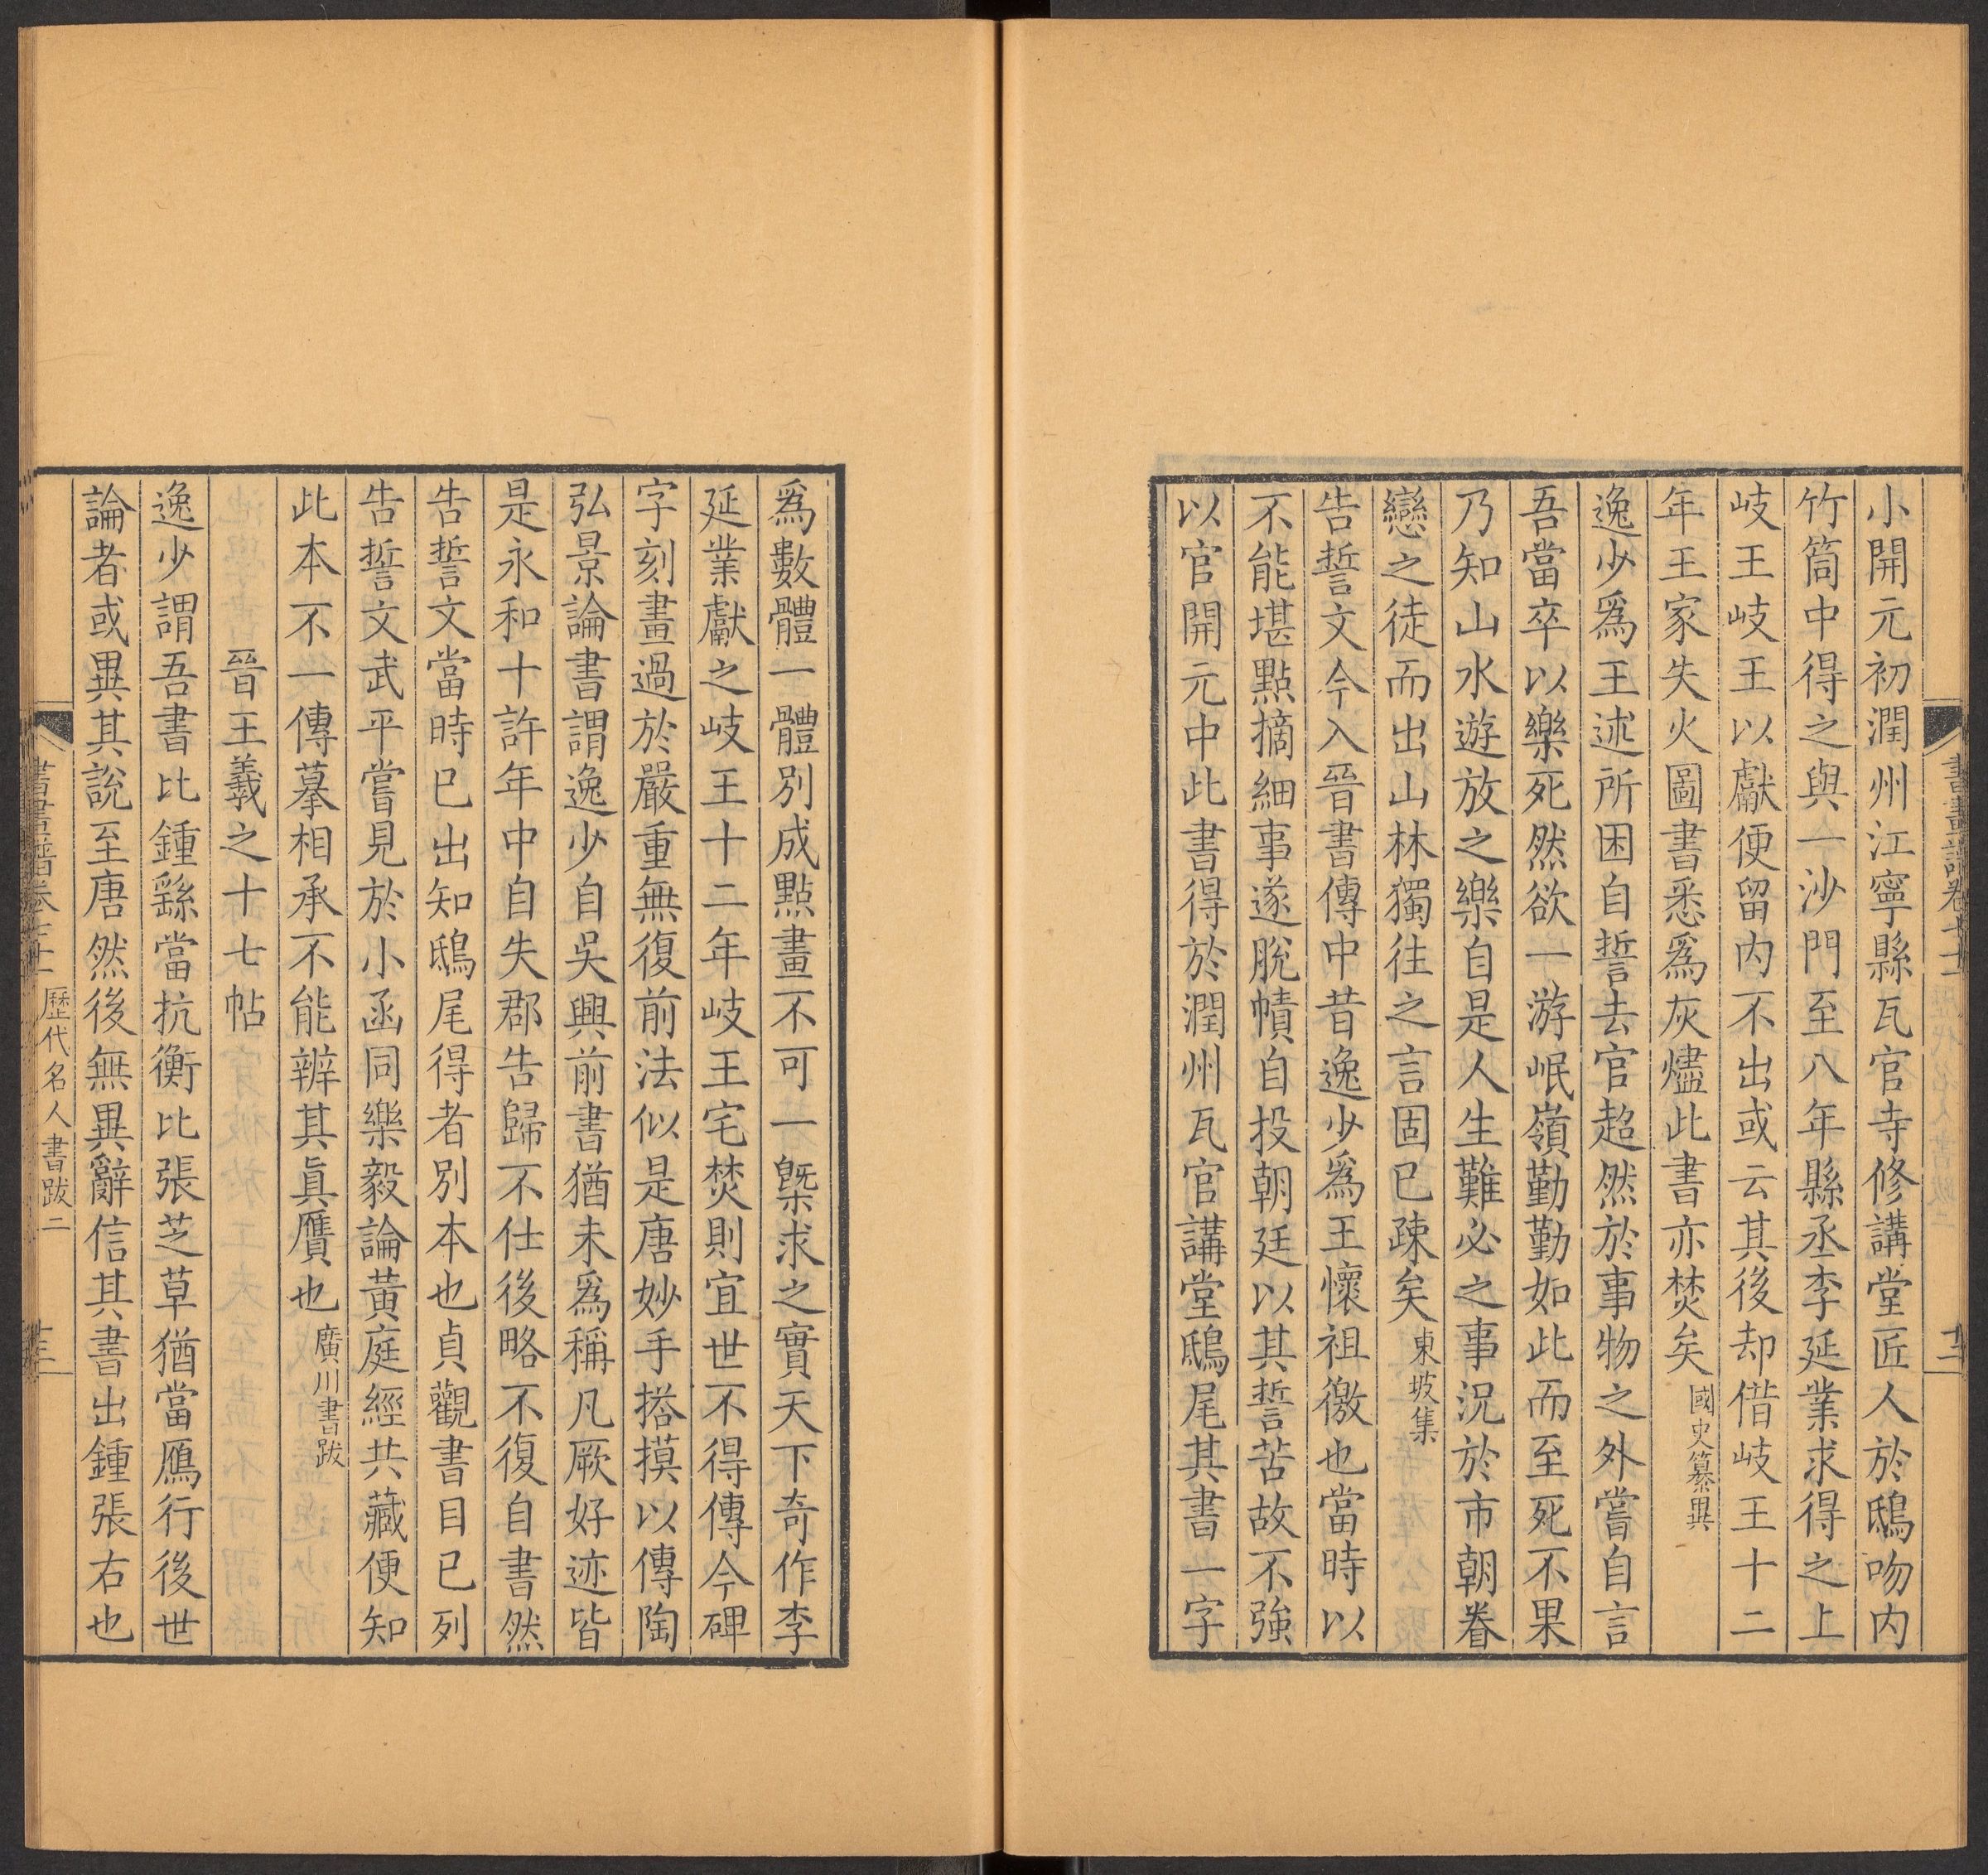 小開元初潤州江寧縣瓦官寺修講堂匠人於鴟吻内
竹筒中得之與一沙門至八年縣丞李延業求得之上
岐王岐王以獻便留内不出或云其後却借岐王十二
年王家失火圖書悉爲灰燼此書亦焚矣國史纂異
逸少爲王述所困自誓去官超然於事物之外嘗自言
吾當卒以樂死然欲一游岷嶺勤勤如此而至死不果
乃知山水遊放之樂自是人生難必之事況於市朝眷
戀之徒而出山林獨往之言固已疎矣東坡集
告誓文今入晉書傳中昔逸少爲王懷祖徼也當時以
不能堪點摘細事遂脫幘自投朝廷以其誓苦故不強
以官開元中此書得於潤州瓦官講堂鴟尾其書一字
爲數體一體別成點畫不可一槩求之實天下奇作李
延業獻之岐王十二年岐王宅焚則宜世不得傳今碑
字刻畫過於嚴重無復前法似是唐妙手搭摸以傳陶
弘景論書謂逸少自吳興前書猶未爲稱凡厥好迹皆
是永和十許年中自失郡告歸不仕後略不復自書然
告誓文當時已出知鴟尾得者別本也貞觀書目已列
告誓文武平嘗見於小函同樂毅論黃庭經共藏便知
此本不一傳摹相承不能辨其眞贋也廣川書跋
晉王羲之十七帖
逸少謂吾書比鍾繇當抗衡比張芝草猶當鴈行後世
論者或異其說至唐然後無異辭信其書出鍾張右也
歷代名人書跋二